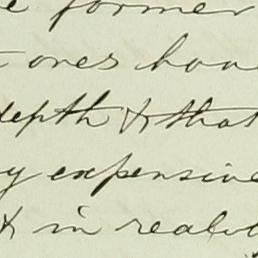 e former
ones hav
depth & that
y expensive
& in realit